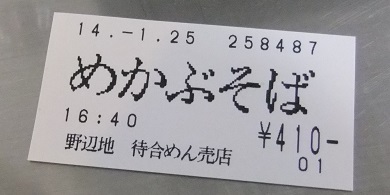 14.-1.25 258487
めかぶそば
16:40 ¥410-
野辺地 待合めん売店 01